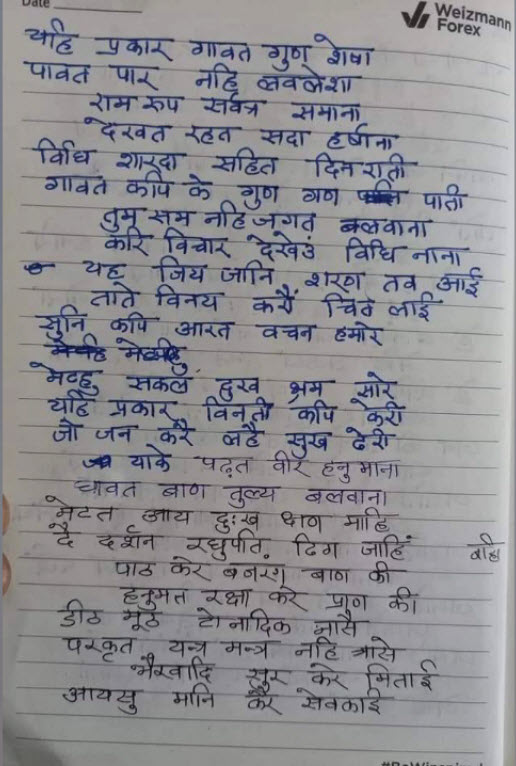 Date
Weizmann
Forex
यहि प्रकार गावत गुण शेषा
पावत पार नहि लवलेशा
राम रूप सर्वत्र समाना
देखत रहत सदा हर्षाना
विधि शारदा सहित दिन राती
गावत कपि के गुण गण पाती
तुम सम नहि जगत बलवाना
करि विचार देखेउं विधि नाना
यह जिय जानि शरण तव आई
ताते विनय करौं चित लाई
सुनि कपि आरत वचन हमारे
मेटहु सकल दुख भ्रम सारे
यहि प्रकार विनती कपि केरी
जो जन करै लहै सुख ढेरी
याके पढ़त वीर हनुमाना
धावत बाण तुल्य बलवाना
मेटत आय दुःख क्षण माहि
दै दर्शन रघुपति ढिग जाहिं
पाठ करे बजरंग बाण की
हनुमत रक्षा करे प्राण की
डीठ मूठ टोनादिक नासै
परकृत यन्त्र मन्त्र नहि त्रासे
भैरवादि सुर करे मिताई
आयसु मानि करै सेवकाई